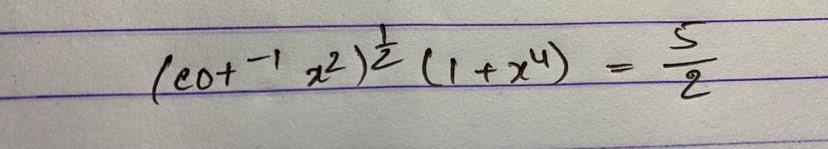 (cot⁻¹ x²)^{1/2} (1 + x⁴) = 5/2